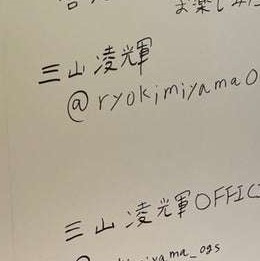 お楽しみに
三山凌輝
@ryokimiyamaO
三山凌輝OFFIC
iyama_ogs